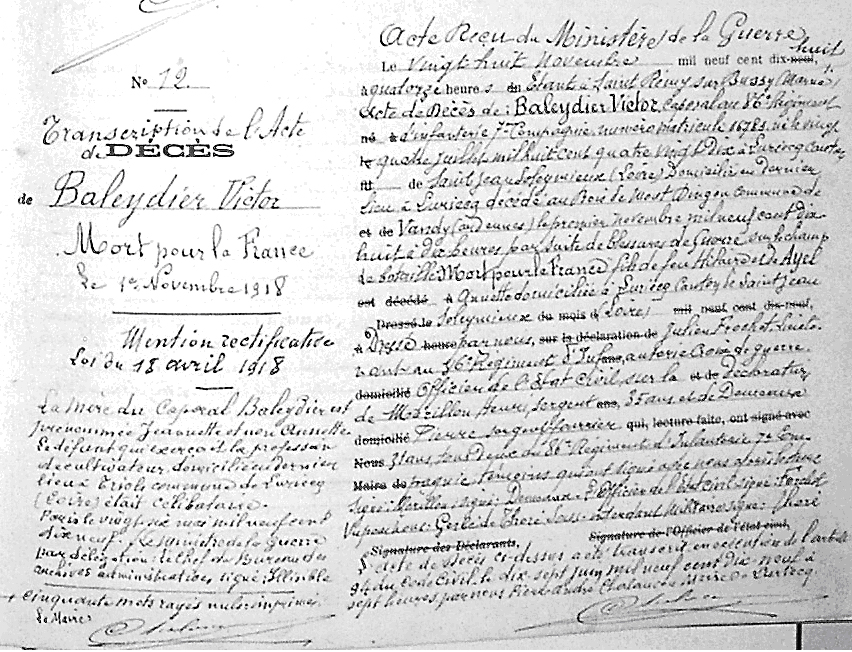 No 12.
Transcription de l'Acte
de DÉCÈS
de Baleydier Victor
Mort pour la France
Le 1er Novembre 1918
Mention rectificative
Loi du 18 avril 1918
La mère du Caporal Baleydier est
prénommée Jeannette et non Annette
Le défunt qui exerça la profession
de cultivateur, domicilié en dernier
lieu à commune de Luriecq
(Loire) était célibataire.
Paris le vingt six mai mil neuf cent
dix neuf. Le Ministre de la Guerre
par délégation : Le Chef du Bureau des
archives administratives signé : Illisible
+ Cinquante mots rayés nuls imprimés
Le Maire
Acte Reçu du Ministère de la Guerre
Le vingt huit novembre mil neuf cent dix-neuf, huit
à quatorze heures du Etant à Saint Rémy sur Bussy (Marne)
Acte de Décès de : Baleydier Victor, Caporal au 86e Régiment
né à d'infanterie 7e Compagnie, numéro matricule né le vingt
le quatre juillet mil huit cent quatre vingt dix à Luriecq Canton
fil de Saint Jean Soleymieux (Loire) Domicilié en dernier
lieu à Luriecq décédé au Bois de Mont Dingon commune de
et de Vandy (Ardennes) le premier novembre mil neuf cent dix
huit à dix heures par suite de blessures de Guerre sur le champ
de bataille Mort pour la France fils de feu Hilaire et de Ayel
est décédé à Annette domiciliée à Luriecq Canton de Saint Jean
Dressé le Soleymieux du mois d (Loire) mil neuf cent dix-neuf,
à Dressé heure par nous, sur la déclaration de Julien Frochot, Lieute-
nant au 86e Régiment d'Infanterie Croix de guerre.
domicilié Officier de l'Etat Civil, sur la et de déclaration
de Marillon Henri, sergent ans, 35 ans et de Demeneix
domicilié Pierre sergent fourrier qui, lecture faite, ont signé avec
Nous 31 ans, tous deux du 86e Régiment d'Infanterie 7e Com-
Maire de pagnie témoins, qui ont signé avec nous après lecture
signé : Marillon signé : Demeneix L'Officier de l'Etat Civil signé : Frochot
Vu pour Sous-intendant Militaire signé :
Signature des Déclarants, Signature de l'Officier de l'état civil,
L'acte de décès ci-dessus a été transcrit en exécution de l'article
94 du Code Civil, le dix sept juin mil neuf cent dix neuf à
sept heures par nous Pierre André Chalancon Maire de Luriecq